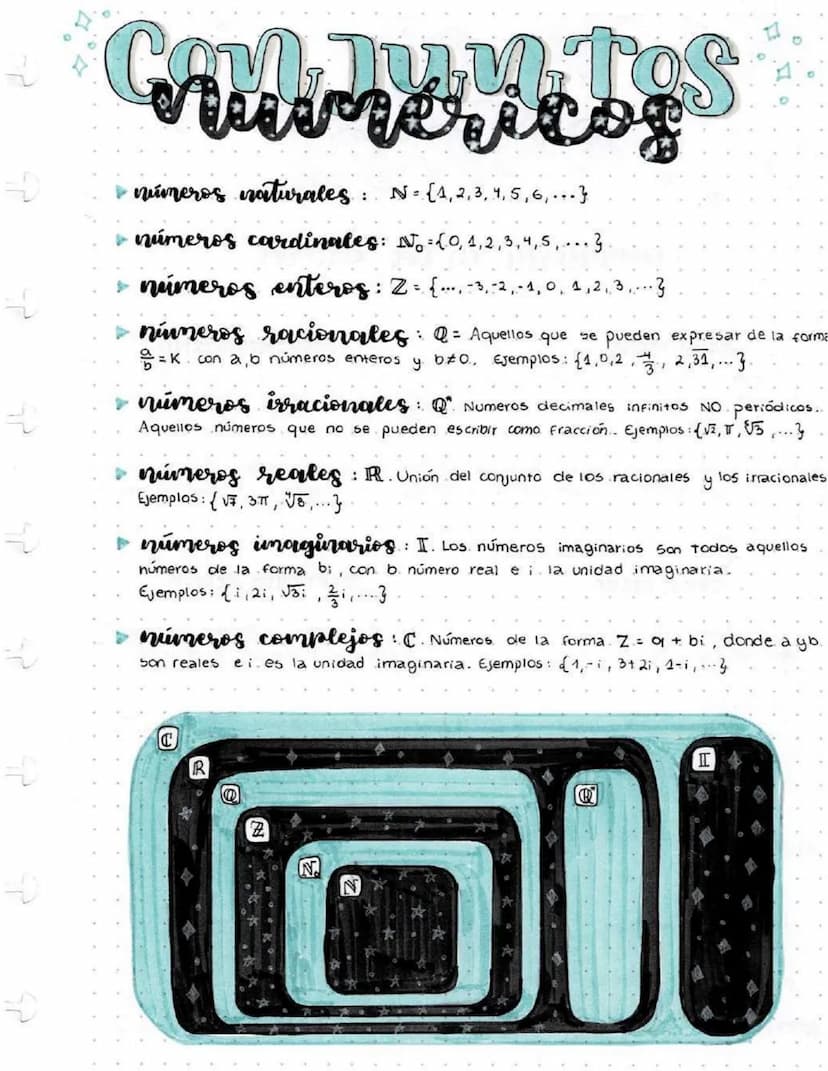 Conjuntos
numéricos
números naturales : ℕ = {1, 2, 3, 4, 5, 6, ...}
números cardinales: ℕ₀ = {0, 1, 2, 3, 4, 5, ...}
números enteros : ℤ = {..., -3, -2, -1, 0, 1, 2, 3, ...}
números racionales : ℚ = Aquellos que se pueden expresar de la forma
a/b = K con a,b números enteros y b≠0. Ejemplos: {1, 0, 2, -4/3, 2,3̅1̅, ...}
números irracionales : ℚ*. Numeros decimales infinitos NO periódicos.
Aquellos números que no se pueden escribir como fracción. Ejemplos: {√2, π, ∛3, ...}
números reales : ℝ. Unión del conjunto de los racionales y los irracionales
Ejemplos: {√7, 3π, ∜8, ...}
números imaginarios : 𝕀. Los números imaginarios son todos aquellos
números de la forma bi, con b número real e i la unidad imaginaria.
Ejemplos: {i, 2i, √3i, 2/3i, ...}
números complejos : ℂ. Números de la forma Z = a + bi, donde a y b
son reales e i es la unidad imaginaria. Ejemplos: {1, -i, 3+2i, 1-i, ...}
ℂ
ℝ
𝕀
ℚ
ℚ*
ℤ
ℕ₀
ℕ